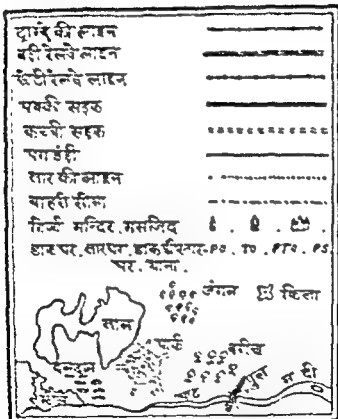 ट्राम्वे की लाइन
बड़ी रेलवे लाइन
छोटी रेलवे लाइन
पक्की सड़क
कच्ची सड़क
पगडंडी
तार की लाइन
बाहरी सीमा
गिर्जा मन्दिर, मसजिद
डाकघर, तारघर, PO. TO. PTO. PS
घर, थाना.
जंगल किला
पार्क
बगीचे
दलदल
घाट पुल नदी